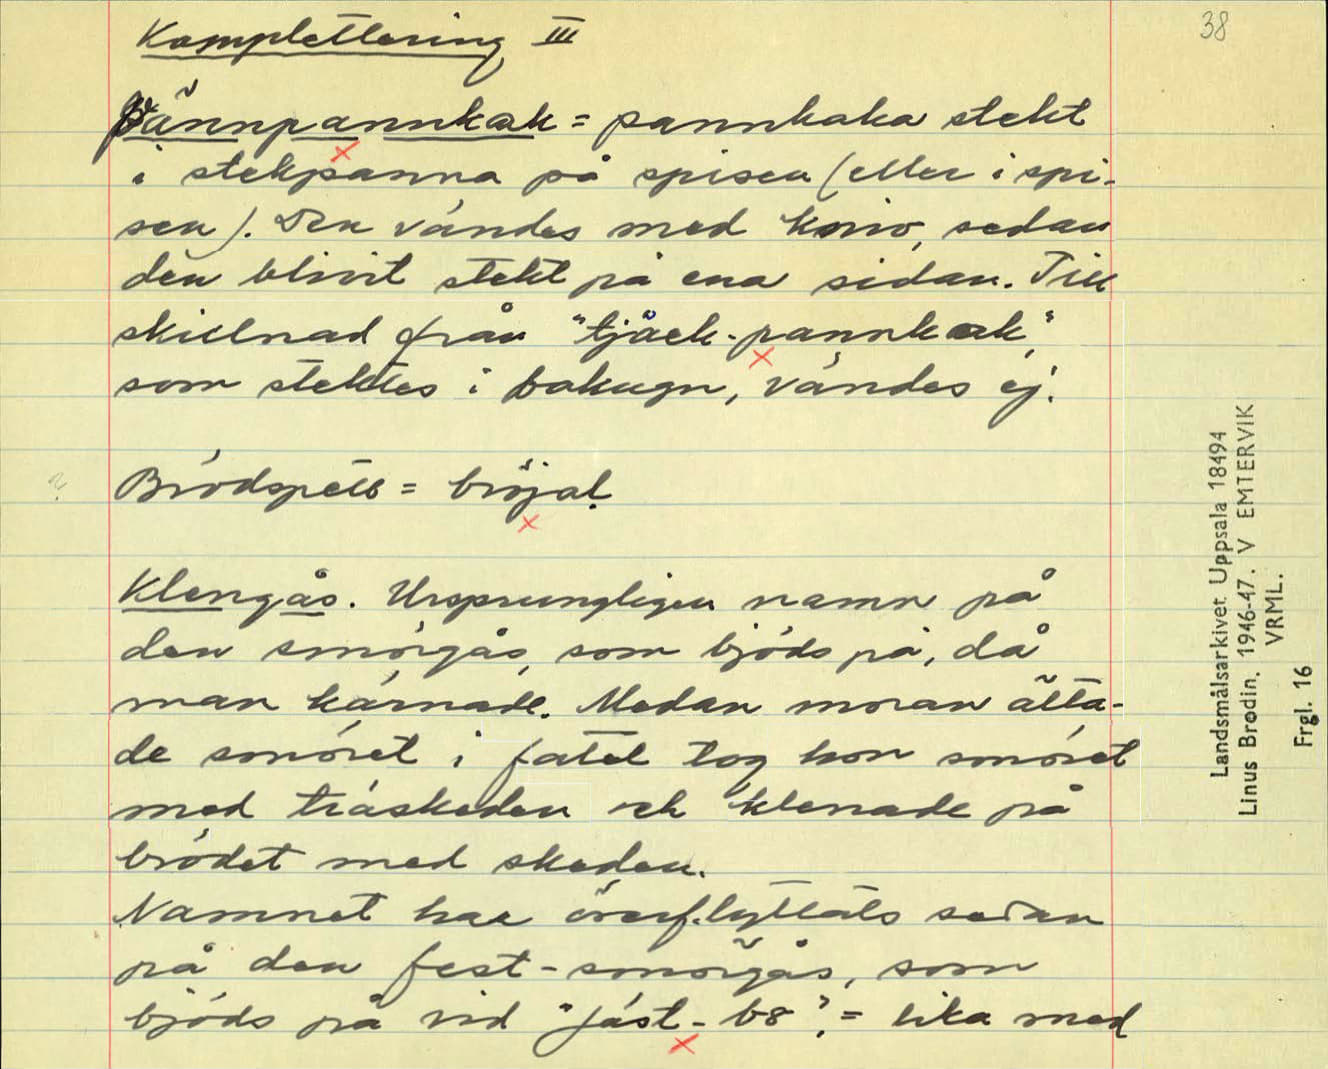 38
Komplettering III
Pännpannkak = pannkaka stekt
i stekpanna på spisen (eller i spi-
sen). Den vändes med kniv, sedan
den blivit stekt på ena sidan. Till
skillnad från "tjåck-pannkak",
som stektes i bakugn, vändes ej.
Brödspett = bröjal
Klengås. Ursprungligen namn på
den smörgås, som bjöds på, då
man kärnade. Medan moran älta-
de smöret i fatet tog hon smöret
med träskeden och klenade på
brödet med skeden.
Namnet har överflyttats sedan
på den fest-smörgås, som
bjöds på vid "jäst-bö", = lika med
Landsmålsarkivet Uppsala 18494
Linus Brodin. 1946-47. V EMTERVIK
VRML.
Frgl. 16